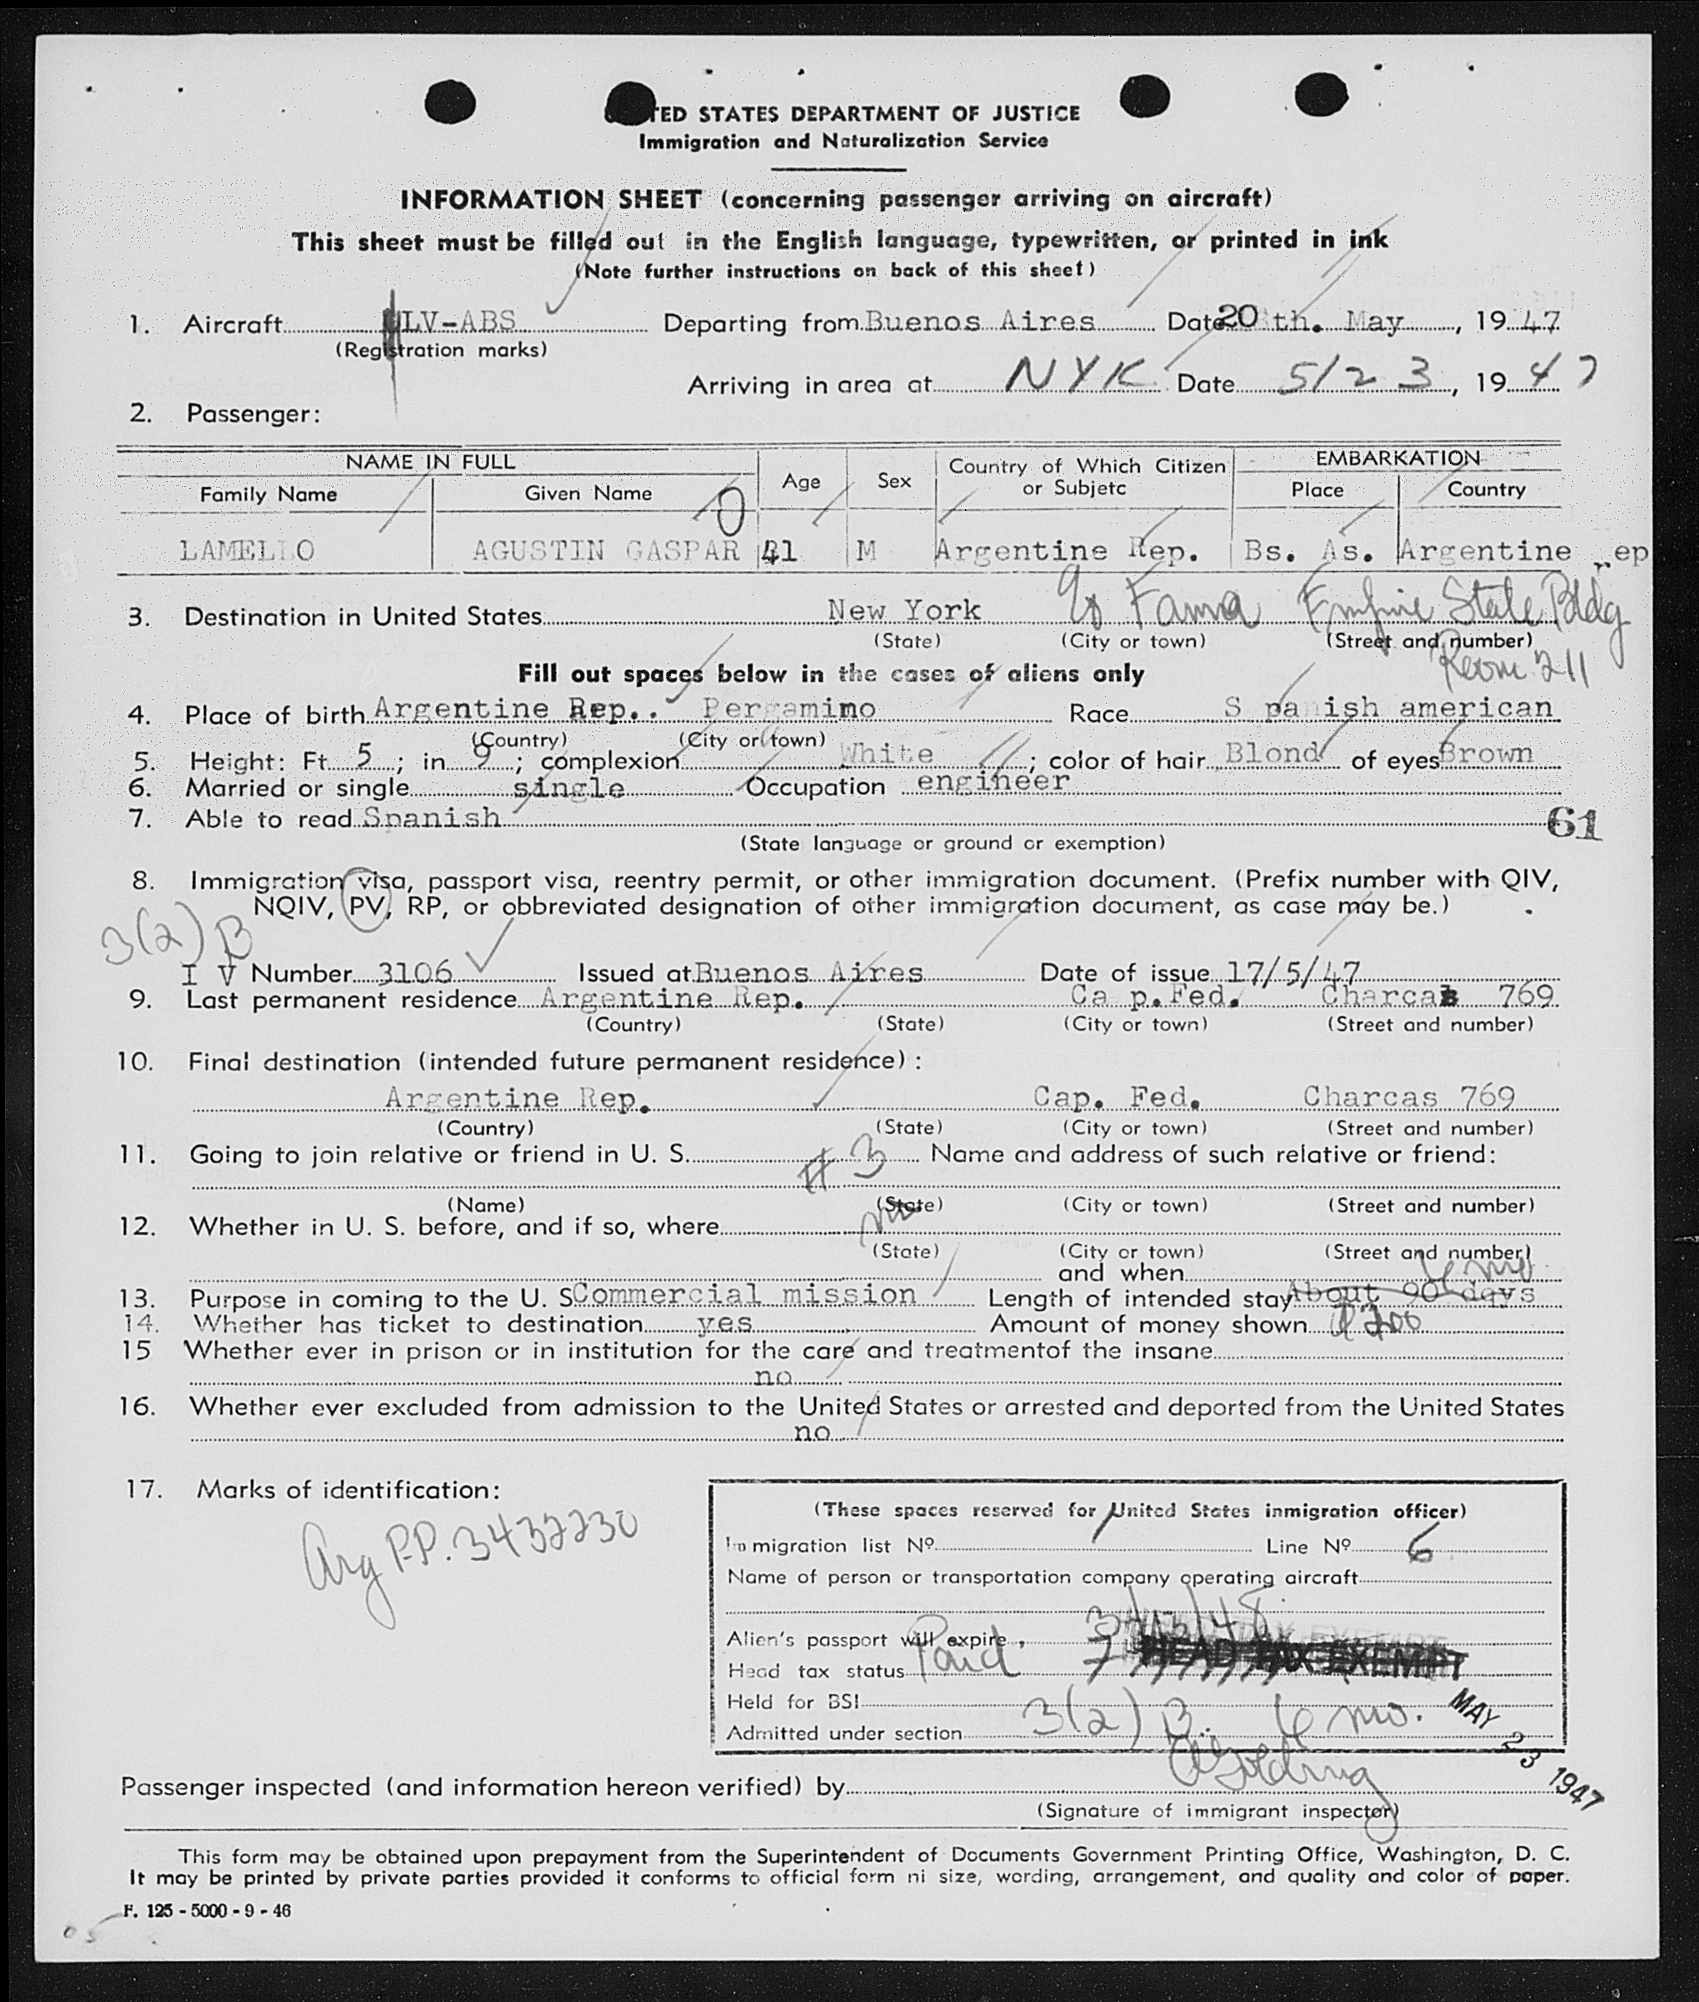 TED STATES DEPARTMENT OF JUSTICE
Immigration and Naturalization Service
INFORMATION SHEET (concerning passenger arriving on aircraft)
This sheet must be filled out in the English language, typewritten, or printed in ink
(Note further instructions on back of this sheet)
1. Aircraft LV-ABS Departing from Buenos Aires Date 20 th. May, 19 47
(Registration marks)
Arriving in area at NYK Date 5/23, 19 47
2. Passenger:
NAME IN FULL Age Sex Country of Which Citizen or Subjetc EMBARKATION
Family Name Given Name Place Country
0
LAMELLO AGUSTIN GASPAR 41 M Argentine Rep. Bs. As. Argentine ep
3. Destination in United States New York c/o Fama Empire State Bldg
(State) (City or town) (Street and number)
Room 211
Fill out spaces below in the cases of aliens only
4. Place of birth Argentine Rep.. Pergamino Race S panish american
(Country) (City or town)
5. Height: Ft. 5; in 9; complexion White; color of hair Blond of eyes Brown
6. Married or single single Occupation engineer
7. Able to read Spanish
61
(State language or ground or exemption)
8. Immigration visa, passport visa, reentry permit, or other immigration document. (Prefix number with QIV,
NQIV, PV, RP, or obbreviated designation of other immigration document, as case may be.)
3(2) B
I V Number 3106 Issued at Buenos Aires Date of issue 17/5/47
9. Last permanent residence Argentine Rep. Ca p.Fed. Charcas 769
(Country) (State) (City or town) (Street and number)
10. Final destination (intended future permanent residece):
Argentine Rep. Cap. Fed. Charcas 769
(Country) (State) (City or town) (Street and number)
11. Going to join relative or friend in U. S. #3 Name and address of such relative or friend:
(Name) (State) (City or town) (Street and number)
12. Whether in U. S. before, and if so, where no
(State) (City or town) (Street and number)
and when
6 mo
13. Purpose in coming to the U. S Commercial mission Length of intended stay About 90 days
14. Whether has ticket to destination yes Amount of money shown $ 200
15 Whether ever in prison or in institution for the care and treatmentof the insane
no
16. Whether ever excluded from admission to the United States or arrested and deported from the United States
no
17. Marks of identification:
Arg P.P. 3432230
(These spaces reserved for United States inmigration officer)
Inmigration list Nº Line Nº 6
Name of person or transportation company operating aircraft
Alien's passport will expire, 3/13/48
Head tax status Paid HEAD TAX EXEMPT
Held for BSI
Admitted under section 3(2) B. 6 mo.
MAY 23 1947
Passenger inspected (and information hereon verified) by
(Signature of immigrant inspector)
This form may be obtained upon prepayment from the Superintendent of Documents Government Printing Office, Washington, D. C.
It may be printed by private parties provided it conforms to official form ni size, wording, arrangement, and quality and color of paper.
F. 125 - 5000 - 9 - 46